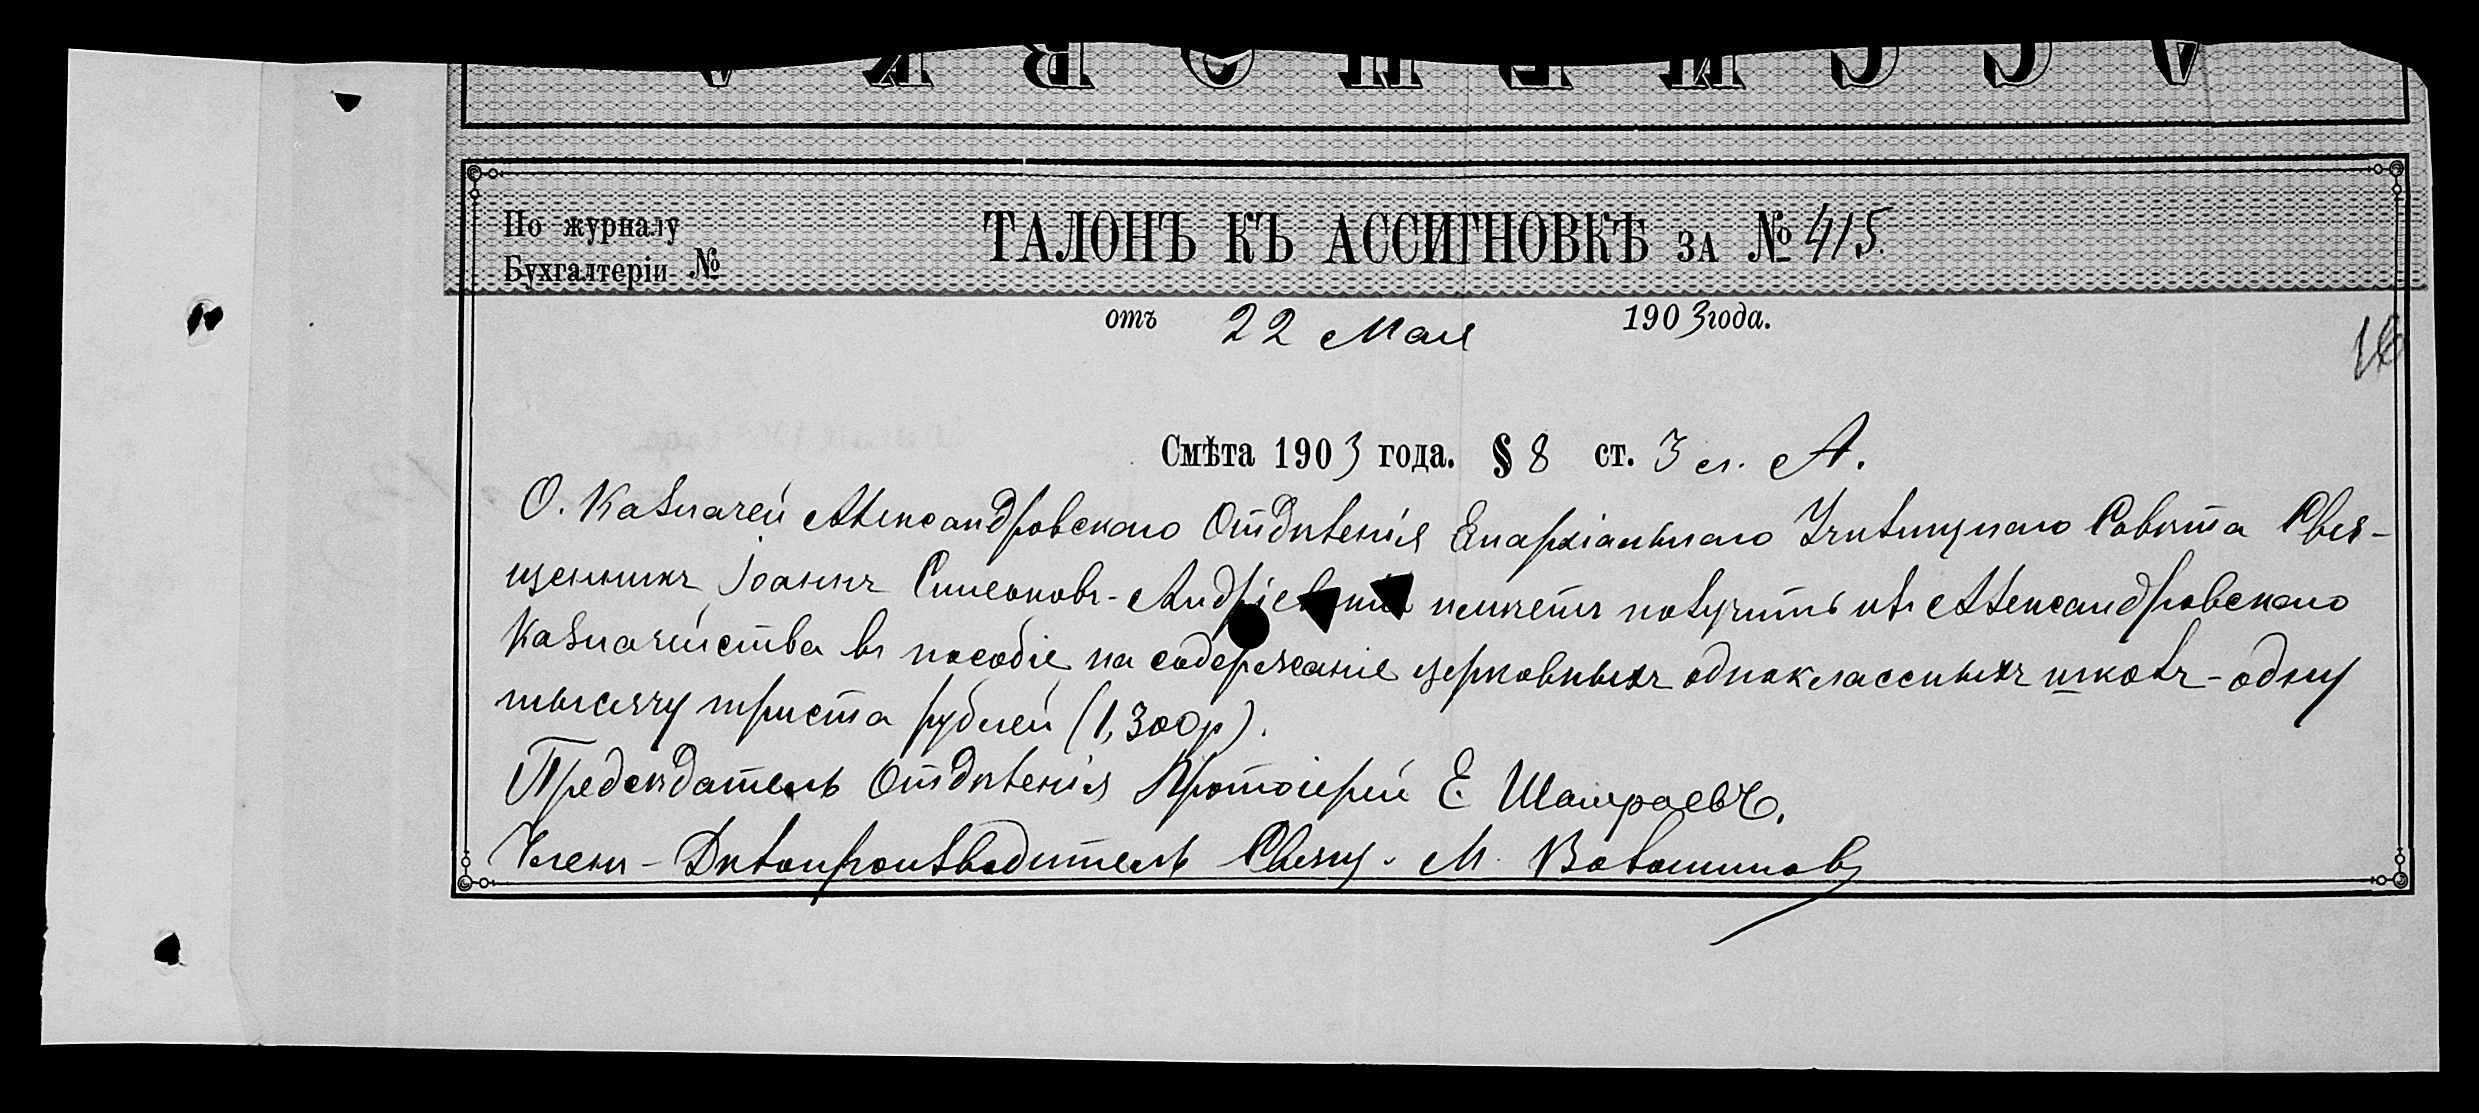 АССИГНОВКА
По журналу
Бухгалтеріи №
ТАЛОНЪ КЪ АССИГНОВКѢ ЗА № 415.
отъ 22 Мая 1903 года.
Смѣта 1903 года. § 8 ст. 3 л. А.
О. Казначей Александровскаго Отдѣленія Епархіальнаго Училищнаго Совѣта Свя-
щенникъ Іоаннъ Симеоновъ-Андріевскій имѣетъ получить изъ Александровскаго
Казначейства въ пособіе на содержаніе церковныхъ одноклассныхъ школъ - одну
тысячу триста рублей (1,300 р).
Предсѣдатель Отдѣленія Протоіерей Е.
Членъ - Дѣлопроизводитель Свящ. М. Волошиновъ